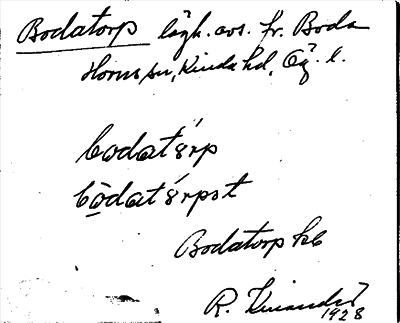 Bodatorp lägh. avs. fr. Boda
Horns sn, Kinda hd, Ög. l.
bodatǫ́rp
bo̱datǫ́rpst
Bodatorp hb
R.
1928